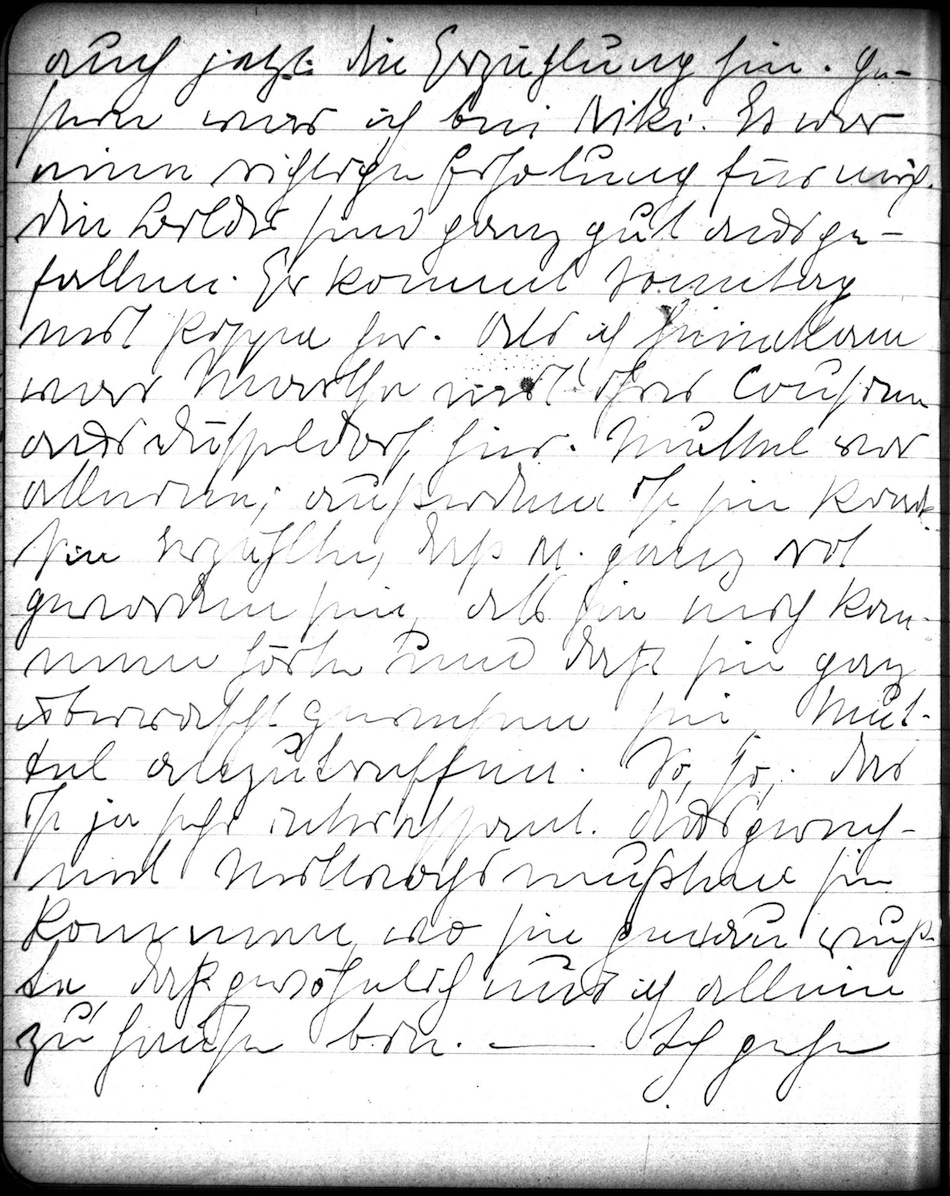 auch jetzt die Erzählung hin. Ge-
stern war ich bei Niki. Es war
eine richtige Erholung für mich.
Die Bilder sind ganz gut ausge-
fallen. Er kommt Sonntag
mit her. Als ich heimkam
war Martha mit ihrer Cousine
aus Düsseldorf hier. Muttel war
allein; außerdem ist sie krank.
Sie erzählte, daß M. ganz rot
geworden sei, als sie mich kom-
men hörte und daß sie ganz
überrascht gewesen sei Mut-
tel anzutreffen. So, so, das
ist ja sehr interessant. Ausgerech-
net Mittwochs mußte sie
kommen, wo sie genau wuß-
te daß gewöhnlich nur ich allein
zu Hause bin. — Ich gehe